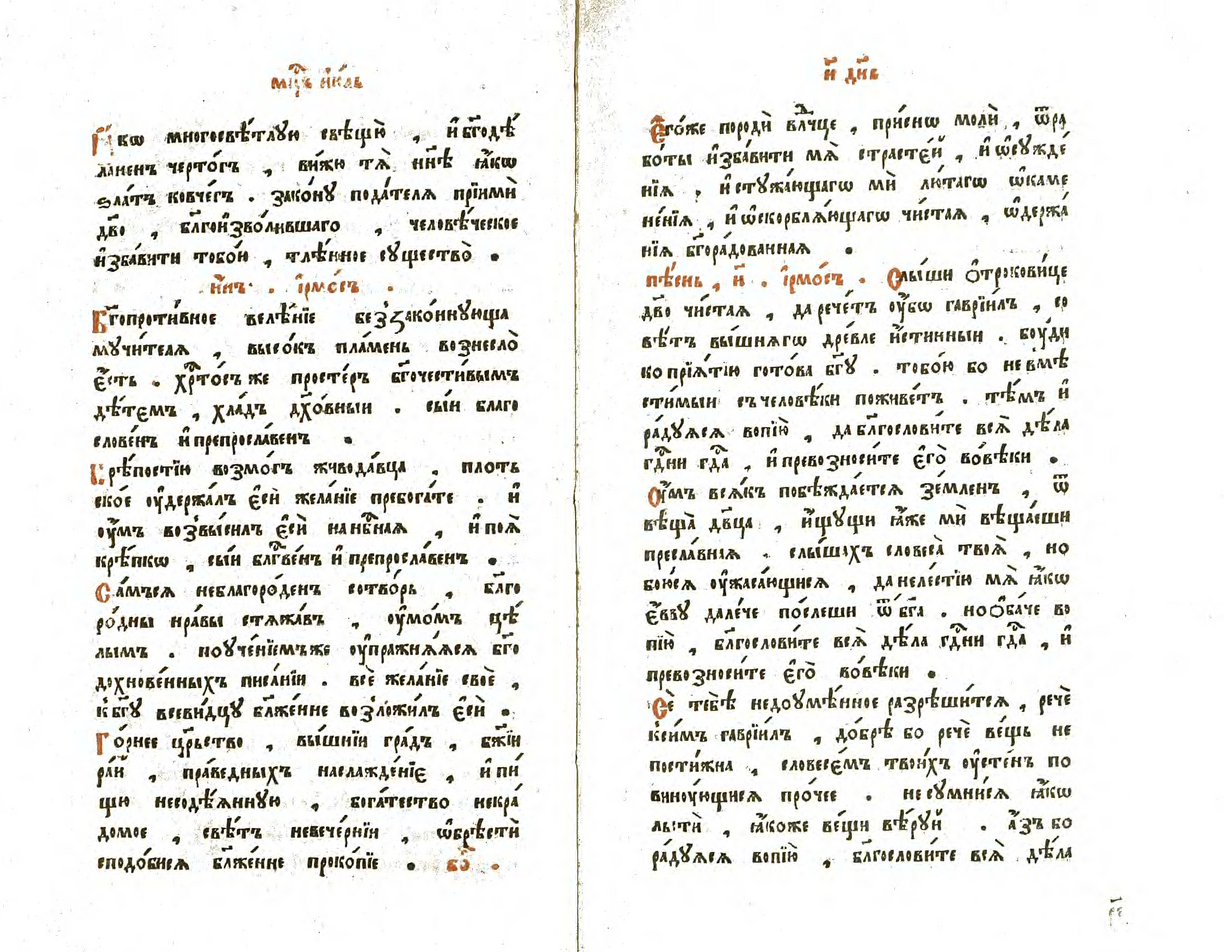 мцⷭ҇ъ ию҆́ль
Ꙗ҆́кѡ многосвѣ́тлую свѣщꙋ̀ , и҆ бг҃одѣ́
ланенъ черто́гъ , ви́жю тѧ̀ нн҃ѣ ꙗ҆́кѡ
ѕла́тъ ковче́гъ . зако́ну пода́телѧ прїимѝ
дв҃о , бл҃гоизво́лившаго , человѣ́ческое
и҆зба́вити тобо́ю , тлѣ́нное существо̀ .
и҆́нъ . і҆рмо́съ .
Бг҃опроти́вное велѣ́нїе беззако́ннующа
мучи́телѧ , высо́къ пла́мень вознесло̀
є҆́сть . хрⷭ҇то́съ же простéръ бг҃очести́вымъ
дѣ́темъ , хла́дъ дх҃о́вныи . сы́и благо
слове́нъ и҆ препросла́венъ .
Крѣ́постїю возмо́гъ живода́вца , пло́ть
ское ѹ҆держа́лъ є҆сѝ жела́нїе пребога́те . и҆
ѹ҆́мъ возвы́силъ є҆сѝ на нб҃ная , и҆ поѧ̀
крѣ́пкѡ , сы́и блⷭ҇ве́нъ и҆ препросла́венъ .
Са́мъсѧ неблагоро́денъ сотво́рь , бл҃го
ро́дны нра́вы стѧжа́въ , ѹ҆мо́мъ цѣ́
лымъ . поуче́нїемъ же ѹ҆пражнѧ́ѧсѧ бг҃о
дохнове́нныхъ писа́нїи . всѐ жела́нїе своѐ ,
к бг҃у всеви́дцу бл҃же́нне возложи́лъ є҆сѝ .
Го́рнее црⷭ҇ьство , вы́шнїи гра́дъ , бж҃їи
ра́й , пра́ведныхъ наслажде́нїе , и҆ пи́
щю несодѣ́янную , бога́тество некра́
домое , свѣ́тъ невече́рнїи , ѡ҆брѣстѝ
сподо́бисѧ бл҃же́нне проко́пїе . бо҃ .
и҃ дн҃ь
Є҆го́же породѝ влⷣчце , при́снѡ молѝ , ѿ ра
бо́ты и҆зба́вити мѧ̀ страсте́й , и҆ ѡ҆сужде́
нїѧ , и҆ стужа́ющагѡ мѝ лю́тагѡ ѡ҆каме
не́нїѧ , и҆ ѡ҆скорблѧ́ющагѡ чи́стая , ѡ҆держа́
нїѧ бг҃ора́дованная .
пѣ́снь , и҃ . і҆рмо́съ . Слы́ши ѻ҆трокови́це
дв҃о чи́стая , да рече́тъ ѹ҆́бѡ гаврїи́лъ , со
вѣ́тъ вы́шнягѡ дре́вле и҆́стинныи . бу́ди
ко прїѧ́тїю гото́ва бг҃у . тобо́ю бо не вмѣ
сти́мыи съ человѣ́ки поживе́тъ . тѣ́мъ и҆
ра́дуѧсѧ вопїю̀ , да благослови́те всѧ̀ дѣ́ла
гдⷭ҇ни гдⷭ҇а , и҆ превозноси́те є҆го̀ во вѣ́ки .
Ѹ҆́мъ всѧ́къ побѣжда́етсѧ зе́мленъ , ѿ
вѣща̀ дв҃ца , и҆щу́щи ꙗ҆́же мѝ вѣща́еши
пресла́вная . слы́шахъ словеса̀ твоѧ̀ , но
бою́сѧ ѹ҆жаса́ющисѧ , да не ле́стїю мѧ̀ ꙗ҆́кѡ
є҆́вву дале́че по́слеши ѿ бг҃а . но ѻ҆ба́че во
пїю̀ , благослови́те всѧ̀ дѣ́ла гдⷭ҇ни гдⷭ҇а , и҆
превозноси́те є҆го̀ во вѣ́ки .
Сѐ тебѣ̀ недоумѣ́нное разрѣши́тсѧ , речѐ
к се́имъ гаврїи́лъ , до́брѣ бо речѐ ве́щь не
пости́жна , словесе́мъ твои́хъ ѹ҆сте́нъ по
вину́ющисѧ про́чее . не сумни́сѧ ꙗ҆́кѡ
льсти , ꙗ҆́коже ве́щи вѣ́руй . а҆́зъ бо
ра́дуѧсѧ вопїю̀ , благослови́те всѧ̀ дѣ́ла